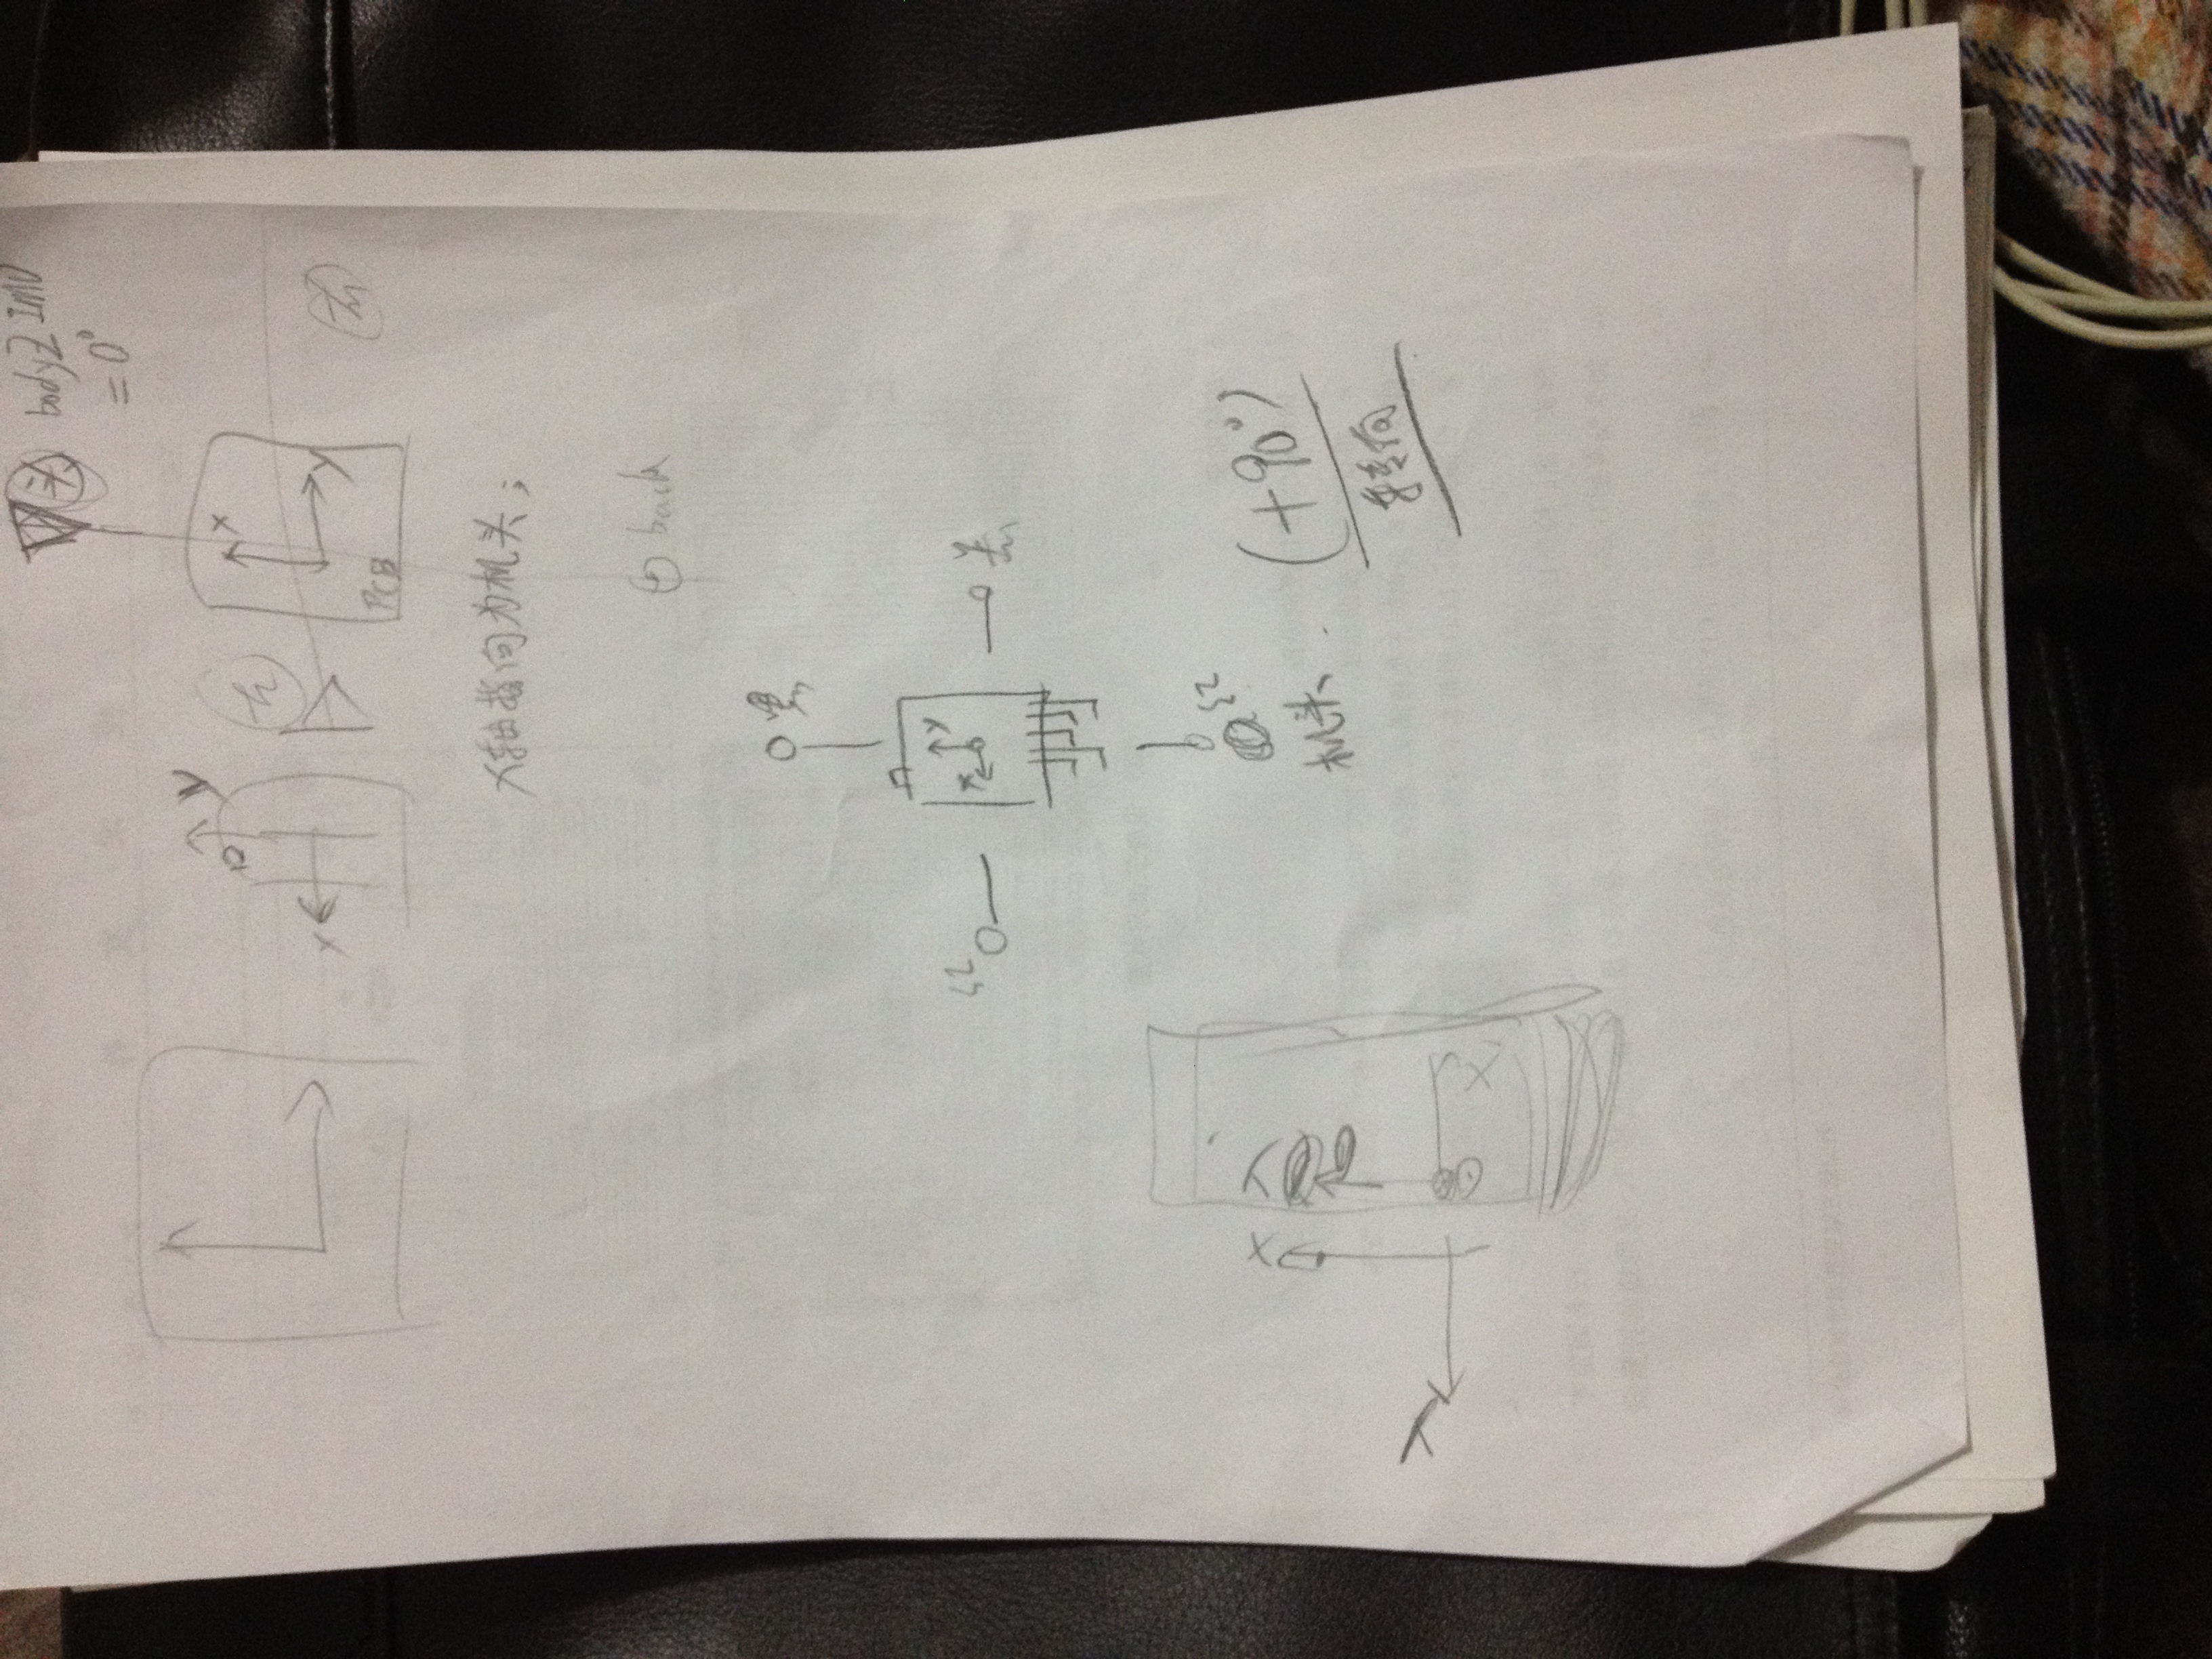 头 body Z IMU
= 0°
y
x
左
x
y
右
PCB
X轴指向为机头；
back
黑
y
x
红
黑
红
机头
(+90°)
转向
X
Y
X